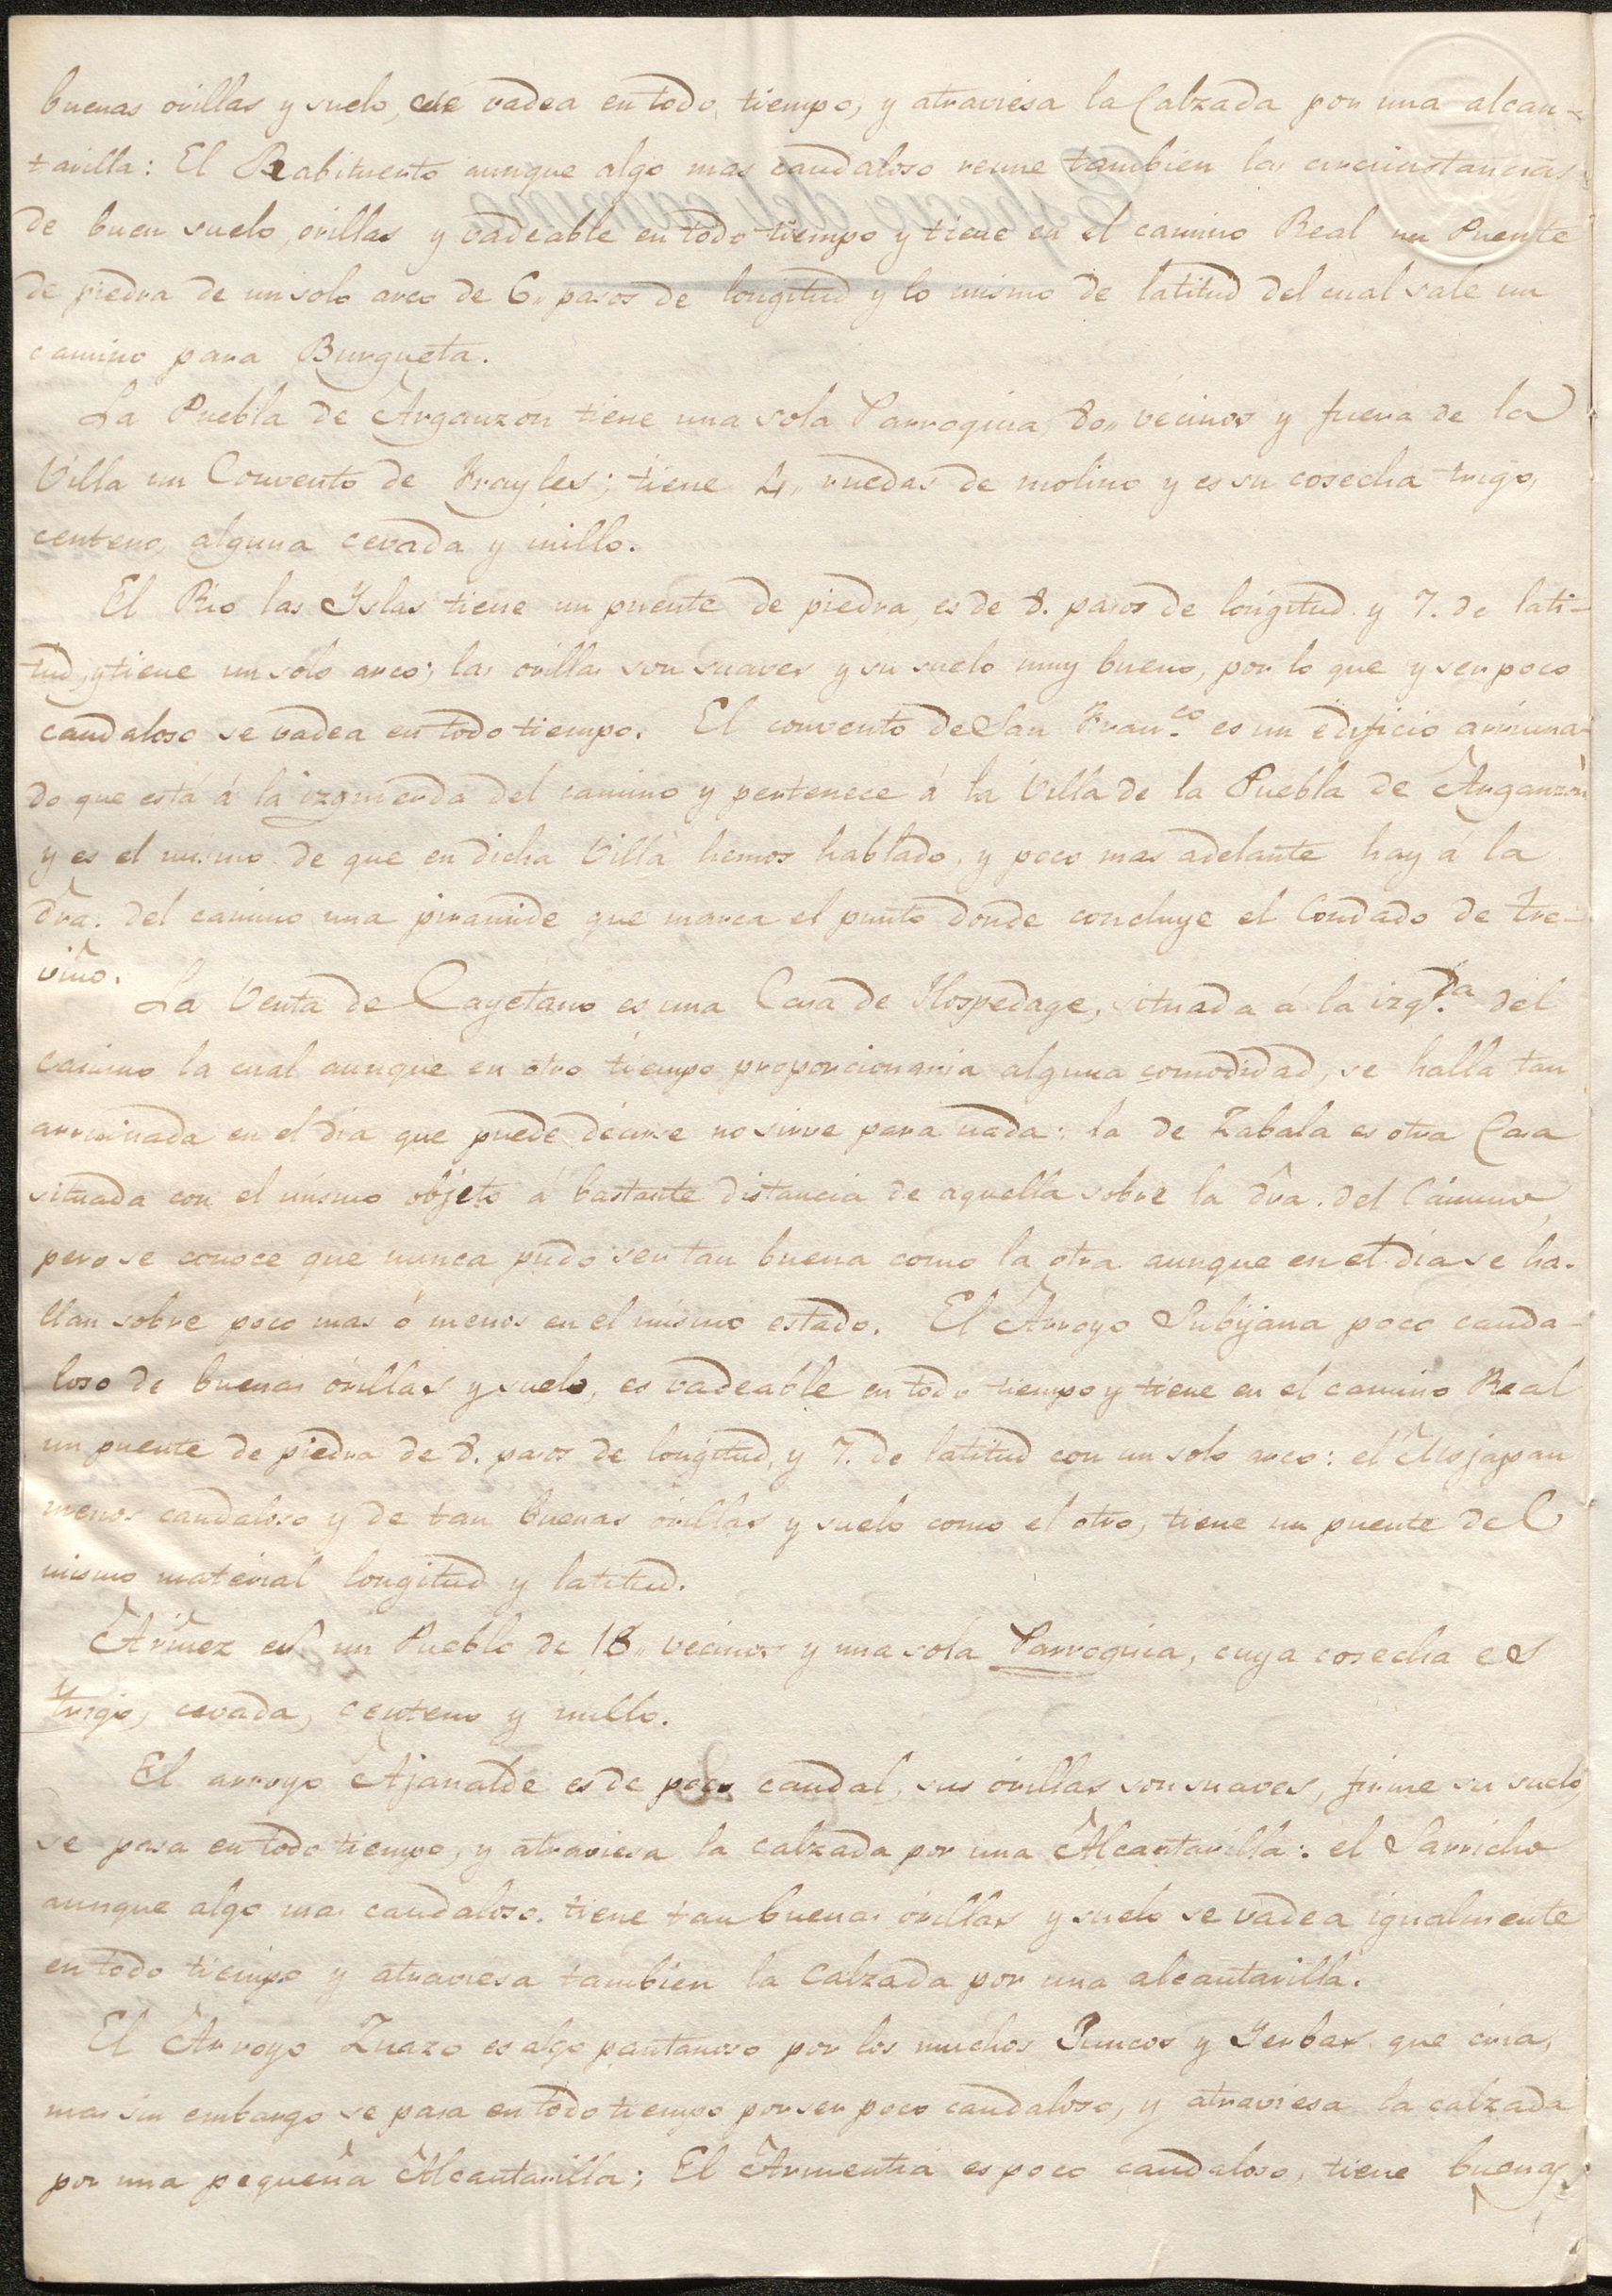 buenas orillas y suelo, se vadea en todo tiempo, y atraviesa la Calzada por una alcan-
tarilla: El Rabituerto aunque algo mas caudaloso reune tambien las circunstancias
de buen suelo, orillas y vadeable en todo tiempo y tiene en el camino Real un Puente
de piedra de un solo arco de 6,, pasos de longitud y lo mismo de latitud del cual sale un
camino para Burgueta.
La Puebla de Arganzon tiene una sola Parroquia, 80,, vecinos y fuera de la
Villa un Convento de Frayles; tiene 4,, ruedas de molino y es su cosecha trigo,
centeno, alguna cevada y millo.
El Rio las Yslas tiene un puente de piedra, es de 8. pasos de longitud y 7. de lati-
tud, y tiene un solo arco; las orillas son suaves y su suelo muy bueno, por lo que y ser poco
caudaloso se vadea en todo tiempo. El convento de San Fran.co es un edificio arruina-
do que está á la izquierda del camino y pertenece á la Villa de la Puebla de Arganzón
y es el mismo de que en dicha Villa hemos hablado. y poco mas adelante hay á la
dra. del camino una piramide que marca el punto donde concluye el Condado de Tre-
viño.
La Venta de Cayetano es una Casa de Hospedage, situada á la izq.da del
camino la cual aunque en otro tiempo proporcionaria alguna comodidad, se halla tan
arruinada en el dia que puede decirse no sirve para nada: la de Zabala es otra Casa
situada con el mismo objeto á bastante distancia de aquella sobre la dra. del Camino,
pero se conoce que nunca pudo ser tan buena como la otra aunque en el dia se ha-
llan sobre poco mas ó menos en el mismo estado. El Arroyo Subijana poco cauda-
loso de buenas orillas y suelo, es vadeable en todo tiempo y tiene en el camino Real
un puente de piedra de 8. pasos de longitud, y 7. de latitud con un solo arco: el Mojapan
menos caudaloso y de tan buenas orillas y suelo como el otro, tiene un puente del
mismo material longitud y latitud.
Ariñez es un Pueblo de 18,, vecinos y una sola Parroquia, cuya cosecha es
trigo, cevada, centeno y millo.
El arroyo Ajanalde es de poco caudal, sus orillas son suaves, firme su suelo,
se pasa en todo tiempo, y atraviesa la calzada por una Alcantarilla: el Sarricho
aunque algo mas caudaloso, tiene tan buenas orillas y suelo se vadea igualmente
en todo tiempo y atraviesa tambien la Calzada por una alcantarilla.
El Arroyo Zuazo es algo pantanoso por los muchos Juncos y Yerbas que cria,
mas sin embargo se pasa en todo tiempo por ser poco caudaloso, y atraviesa la calzada
por una pequeña Alcantarilla; El Armentia es poco caudaloso, tiene buenas